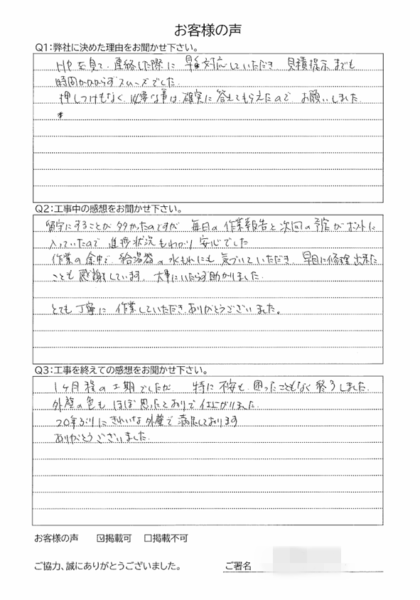 お客様の声
Q1:弊社に決めた理由をお聞かせ下さい。
HPを見て、連絡した際に 早急対応していただき 見積提示までも
時間かからずスムーズでした。
押しつけもなく、必要な事は 確実に 答えてもらえたので お願いしました。
Q2:工事中の感想をお聞かせ下さい。
留守にすることが 多かったのですが 毎日の 作業報告と次回の予定が ポストに
入っていたので 進捗状況もわかり 安心でした
作業の途中で 給湯器の水もれにも 気づいていただき 早目に修理出来た
ことも 感謝しています。大事にいたらず助かりました。
とても丁寧に 作業していただき ありがとうございました。
Q3:工事を終えての感想をお聞かせ下さい。
1ヶ月程の工期でしたが 特に不安も 困ったこともなく 終了しました。
外壁の色も ほぼ 思ったとおりで 仕上がりました。
20年ぶりに きれいな 外壁で 満足しております
ありがとうございました。
お客様の声 ☑掲載可 □掲載不可
ご協力、誠にありがとうございました。 ご署名